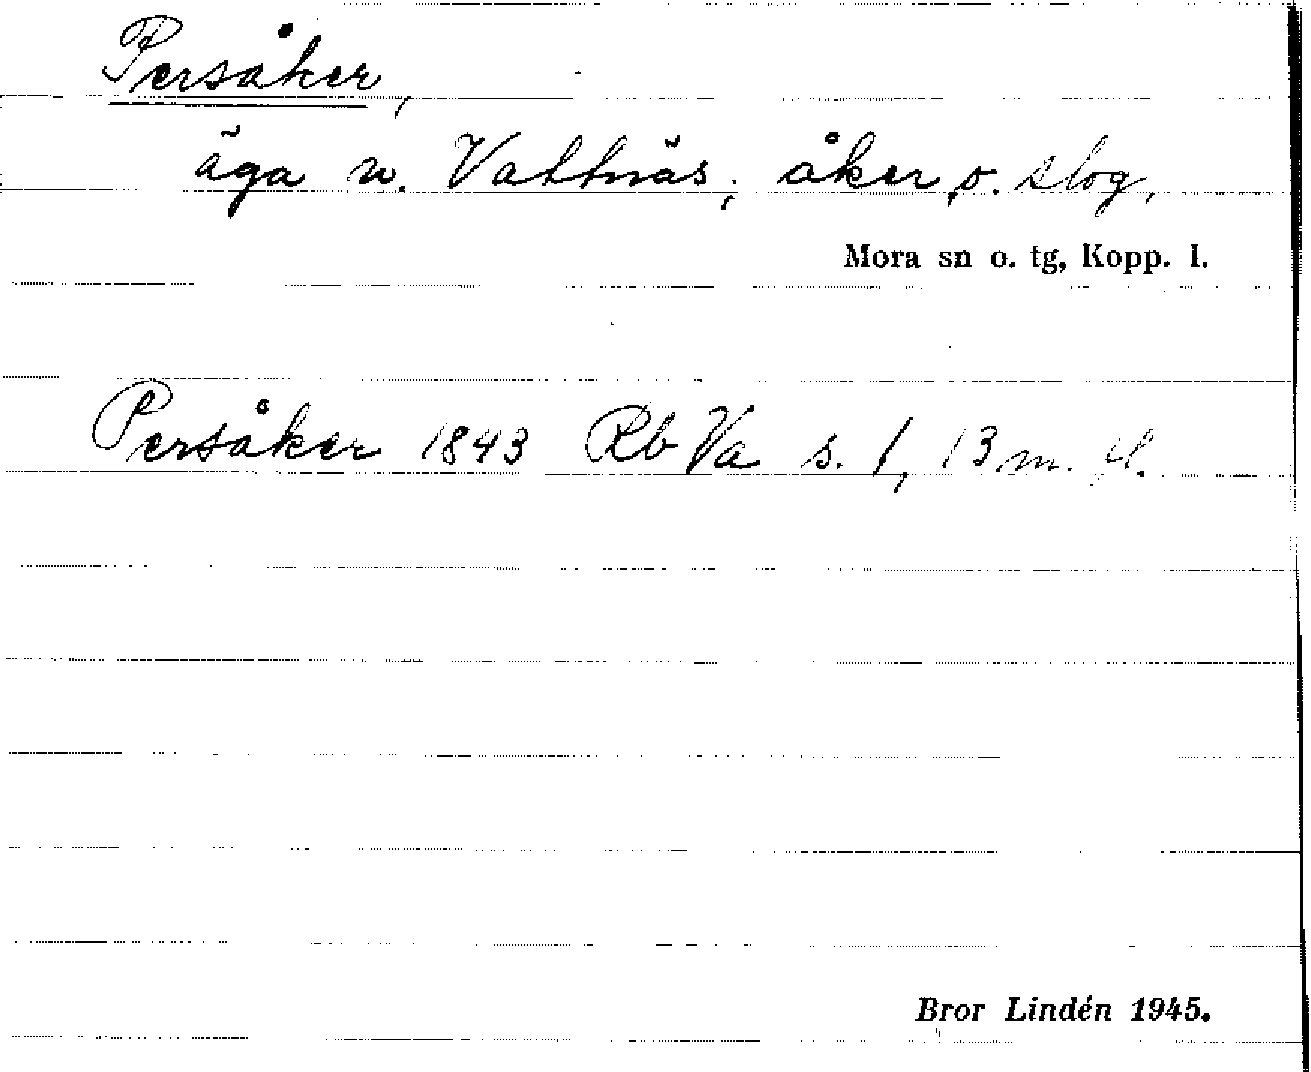 Persåker,
äga n. Vattnäs; åker o. slog.
Mora sn o. tg, Kopp. l.
Persåker 1843 Rb Va s. 1, 13 m. fl.
Bror Lindén 1945.